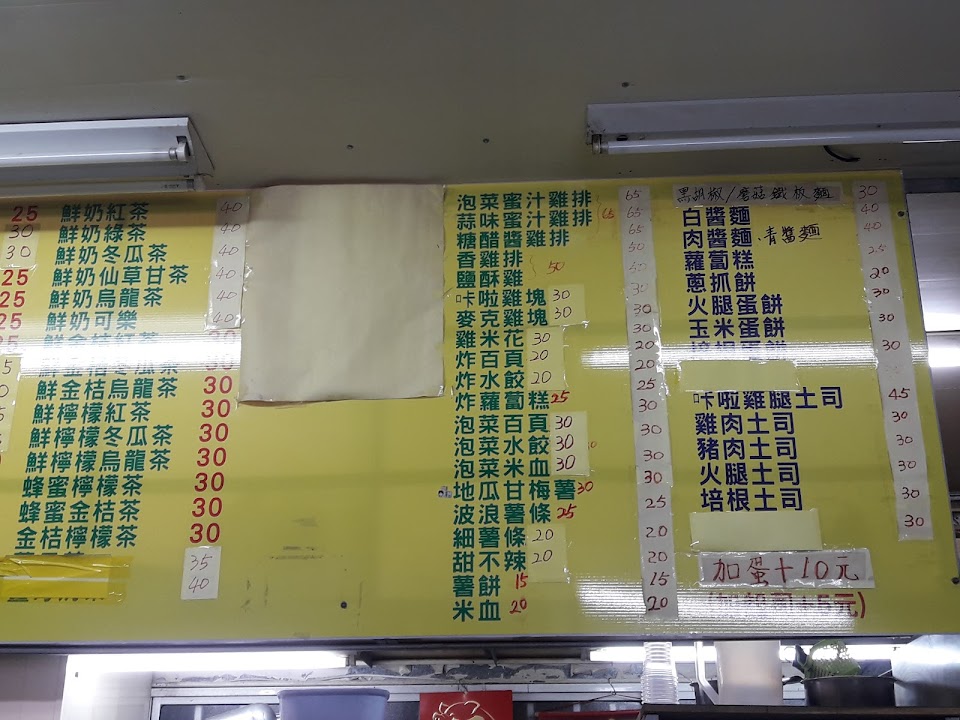 25 鮮奶紅茶 40
30 鮮奶綠茶 40
30 鮮奶冬瓜茶 40
25 鮮奶仙草甘茶 40
25 鮮奶烏龍茶 40
25 鮮奶可樂 40
鮮金桔紅茶 30
鮮金桔冬瓜茶 30
鮮金桔烏龍茶 30
鮮檸檬紅茶 30
鮮檸檬冬瓜茶 30
鮮檸檬烏龍茶 30
蜂蜜檸檬茶 30
蜂蜜金桔茶 30
金桔檸檬茶 30
35
40
泡菜蜜汁雞排 65
蒜味蜜汁雞排 65 65
糖醋醬雞排 65
香雞排 50
鹽酥雞 50 50
咔啦雞塊 30 30
麥克雞塊 30 30
雞米花 30 30
炸百頁 20 20
炸水餃 20 20
炸蘿蔔糕 25 25
泡菜百頁 30 30
泡菜水餃 30 30
泡菜米血 30 30
地瓜甘梅薯 30 30
波浪薯條 25 25
細薯條 20 20
甜不辣 20 20
薯餅 15 15
米血 20 20
黑胡椒/蘑菇鐵板麵 30
白醬麵 40
肉醬麵、青醬麵 40
蘿蔔糕 25
蔥抓餅 20
火腿蛋餅 30
玉米蛋餅 30
培根蛋餅 30
咔啦雞腿土司 45
雞肉土司 30
豬肉土司 30
火腿土司 30
培根土司 30
30
加蛋+10元